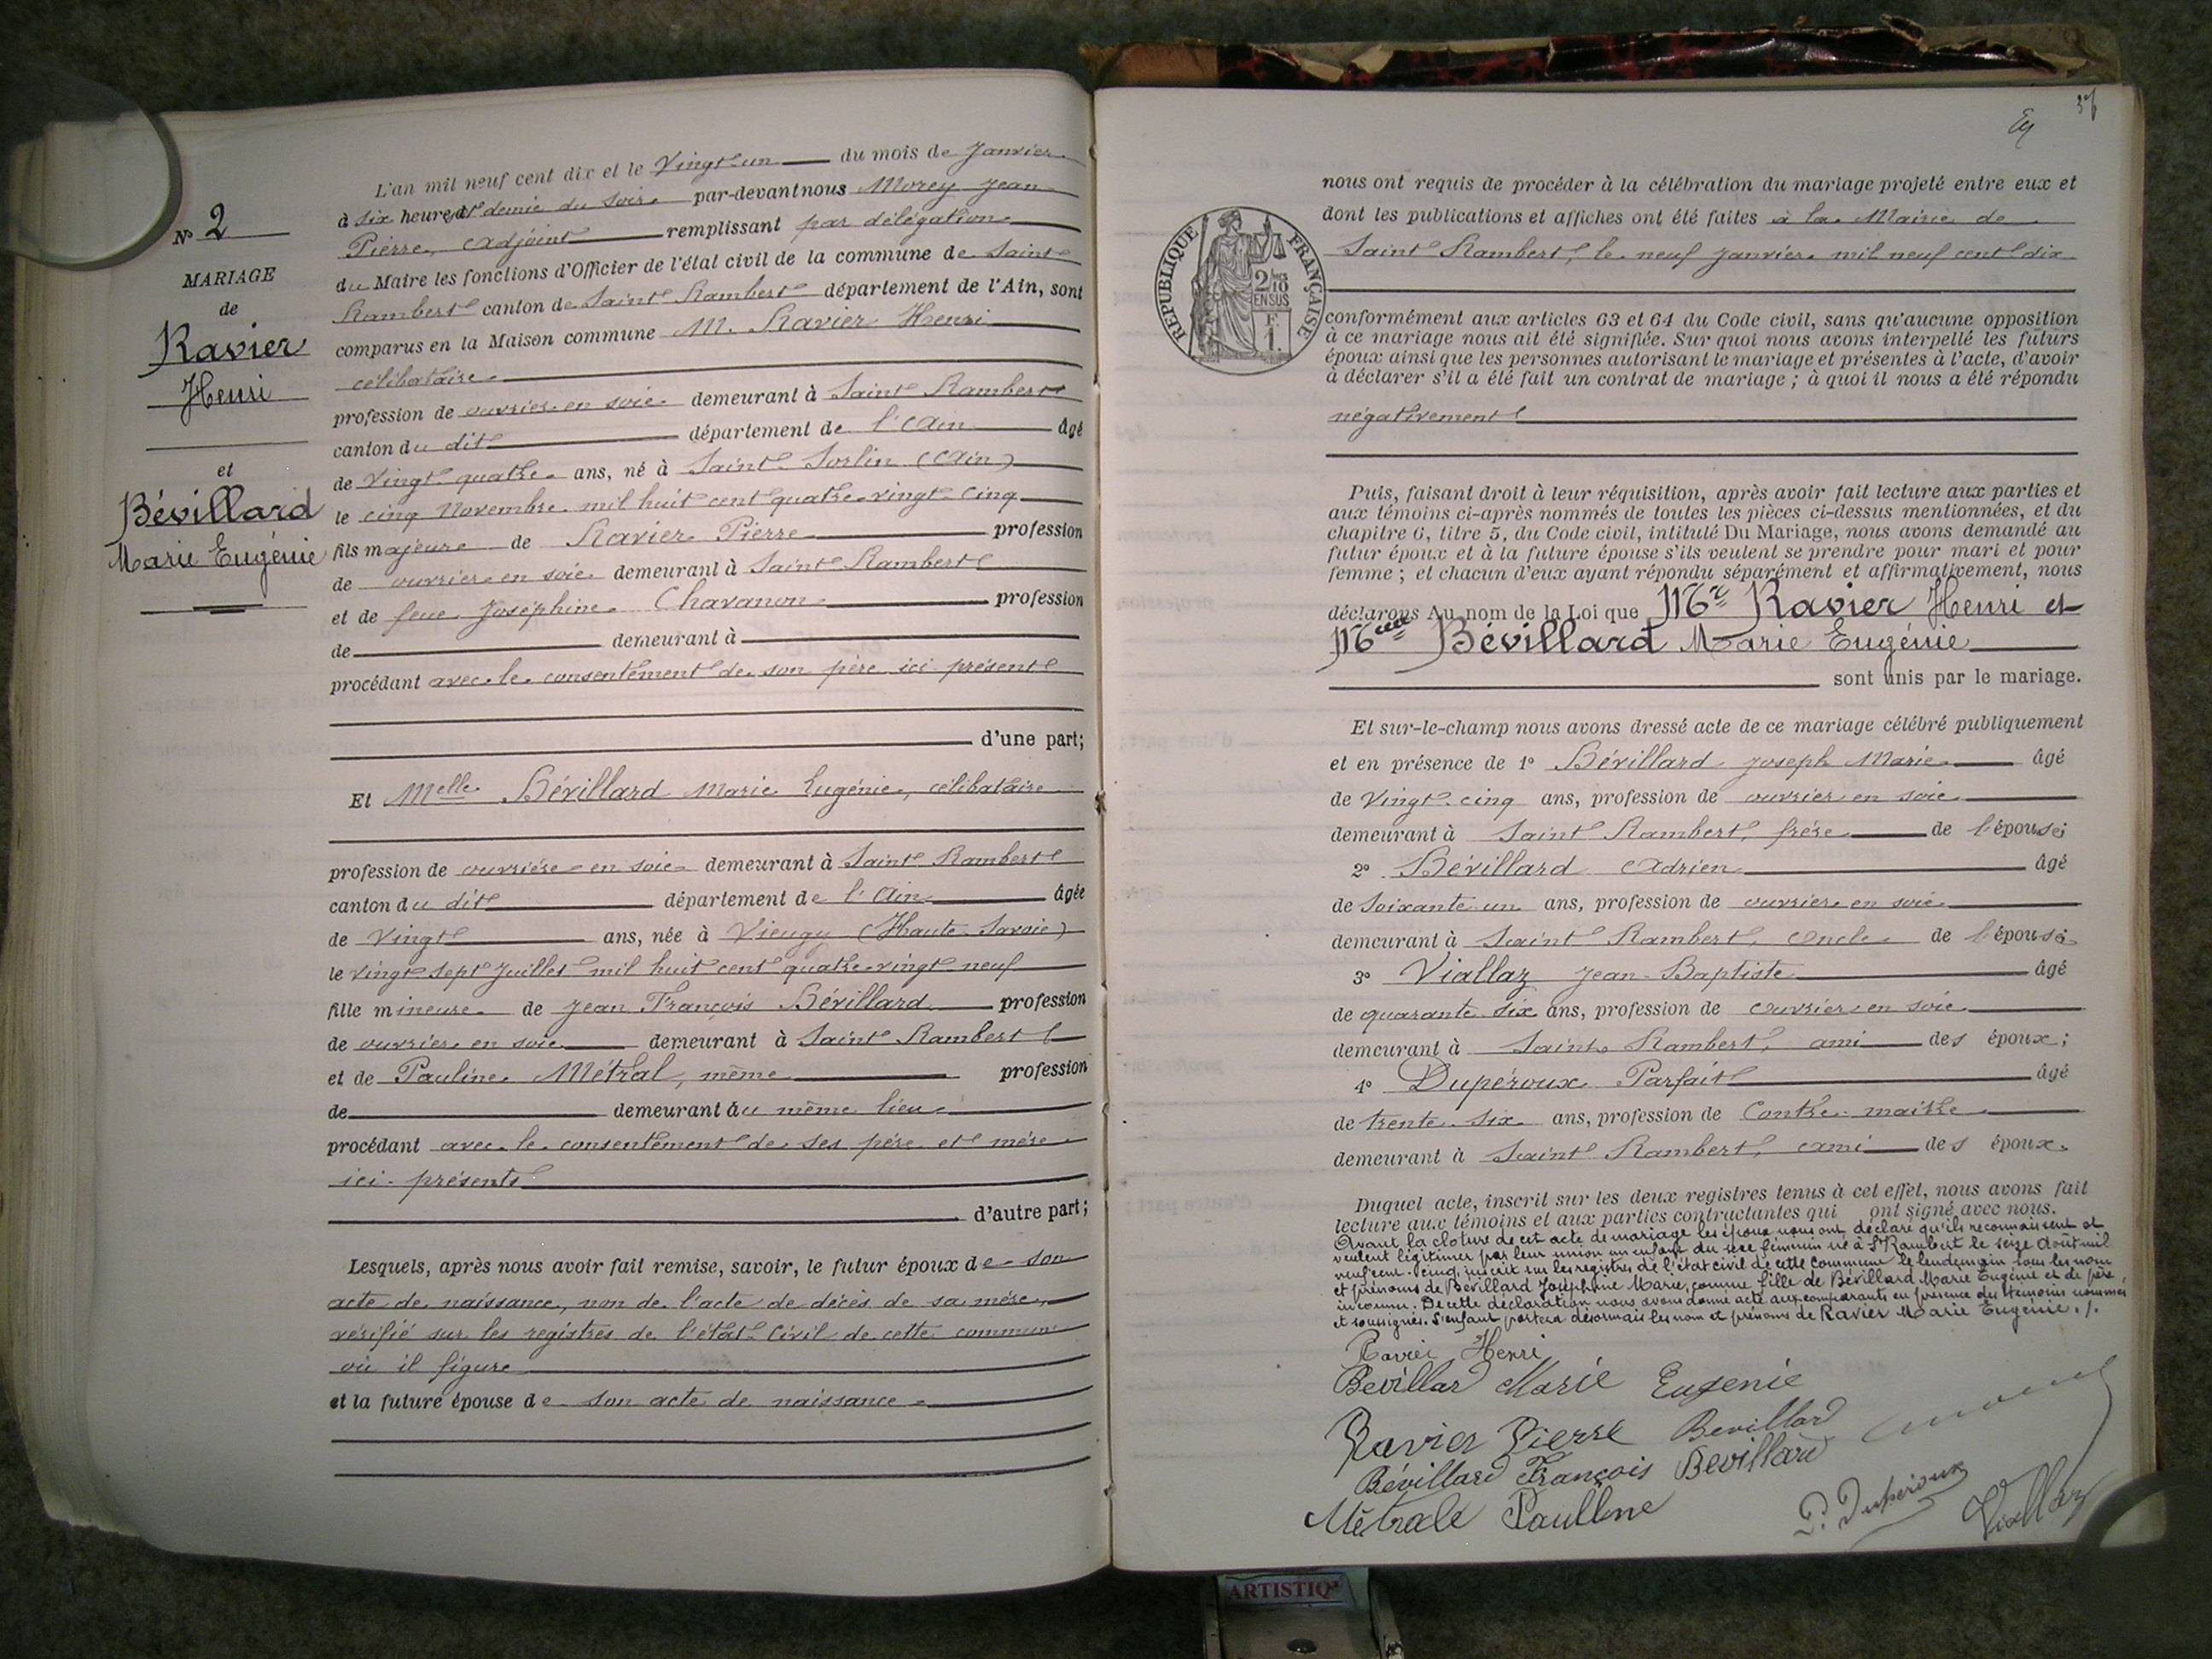 N° 2
MARIAGE
de
Ravier
Henri
et
Bévillard
Marie Eugénie
L'an mil neuf cent dix et le Vingt-un du mois de Janvier
à six heures et demie du soir par-devant nous Morey Jean
Pierre, Adjoint remplissant par délégation
du Maire les fonctions d'Officier de l'état civil de la commune de Saint
Rambert canton de Saint Rambert département de l'Ain, sont
comparus en la Maison commune M. Ravier Henri
célibataire
profession de ouvrier en soie demeurant à Saint Rambert
canton du dit département de l'Ain âgé
de Vingt quatre ans, né à Saint Sorlin (Ain)
le cinq Novembre mil huit cent quatre-vingt cinq
fils majeur de Ravier Pierre profession
de ouvrier en soie demeurant à Saint Rambert
et de feue Joséphine Chavanon profession
de demeurant à
procédant avec le consentement de son père ici présent
d'une part;
Et Melle Bévillard Marie Eugénie, célibataire
profession de ouvrière en soie demeurant à Saint Rambert
canton du dit département de l'Ain âgée
de Vingt ans, née à Vieugy (Haute-Savoie)
le vingt-sept Juillet mil huit cent quatre-vingt-neuf
fille mineure de Jean François Bévillard profession
de ouvrier en soie demeurant à Saint Rambert
et de Pauline Métral, même profession
de demeurant au même lieu
procédant avec le consentement de ses père et mère
ici présents
d'autre part;
Lesquels, après nous avoir fait remise, savoir, le futur époux de son
acte de naissance, non de l'acte de décès de sa mère,
vérifié sur les registres de l'état-civil de cette commune
où il figure
et la future épouse de son acte de naissance
37
nous ont requis de procéder à la célébration du mariage projeté entre eux et
dont les publications et affiches ont été faites à la Mairie de
Saint Rambert, le neuf janvier mil neuf cent dix
RÉPUBLIQUE FRANÇAISE
2/10
EN SUS
F.
1.
conformément aux articles 63 et 64 du Code civil, sans qu'aucune opposition
à ce mariage nous ait été signifiée. Sur quoi nous avons interpellé les futurs
époux ainsi que les personnes autorisant le mariage et présentes à l'acte, d'avoir
à déclarer s'il a été fait un contrat de mariage ; à quoi il nous a été répondu
négativement
Puis, faisant droit à leur réquisition, après avoir fait lecture aux parties et
aux témoins ci-après nommés de toutes les pièces ci-dessus mentionnées, et du
chapitre 6, titre 5, du Code civil, intitulé Du Mariage, nous avons demandé au
futur époux et à la future épouse s'ils veulent se prendre pour mari et pour
femme ; et chacun d'eux ayant répondu séparément et affirmativement, nous
déclarons Au nom de la Loi que Mr Ravier Henri et
Melle Bévillard Marie Eugénie
sont unis par le mariage.
Et sur-le-champ nous avons dressé acte de ce mariage célébré publiquement
et en présence de 1° Bévillard Joseph Marie âgé
de Vingt-cinq ans, profession de ouvrier en soie
demeurant à Saint Rambert, frère de l'épouse;
2° Bévillard Adrien âgé
de Soixante un ans, profession de ouvrier en soie
demeurant à Saint Rambert, oncle de l'épouse
3° Viallaz Jean-Baptiste âgé
de quarante-six ans, profession de ouvrier en soie
demeurant à Saint Rambert, ami des époux;
4° Dupéroux Parfait âgé
de trente-six ans, profession de Contre-maître
demeurant à Saint Rambert, ami des époux.
Duquel acte, inscrit sur les deux registres tenus à cet effet, nous avons fait
lecture aux témoins et aux parties contractantes qui ont signé avec nous.
Avant la cloture de cet acte de mariage les époux nous ont déclaré qu'ils reconnaissent et
veulent légitimer par leur union un enfant du sexe féminin né à St Rambert le seize Août mil
neuf cent-cinq, inscrit sur les registres de l'état civil de cette commune le lendemain sous les nom
et prénoms de Bévillard Joséphine Marie, comme fille de Bévillard Marie Eugénie et de père
inconnu. De cette déclaration nous avons donné acte aux comparants en présence des témoins nommés
et soussignés. L'enfant portera désormais les nom et prénoms de Ravier Marie Eugénie ./.
Ravier Henri
Bevillard Marie Eugenie
Ravier Pierre Bevillard
Bévillard François Bevillard
Métrale Paulline P. Duperoux Viallaz
ARTISTIQ